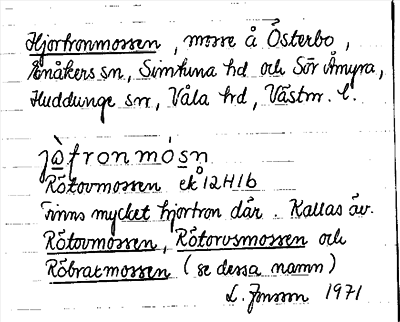 Hjortronmossen, mosse å Österbo,
Enåkers sn, Simtuna hd och Sör Åmyra,
Huddunge sn, Våla hd, Västm. l.
jò̱fronmó̱sn
Rötovmossen ek 12H1b
Finns mycket hjortron där. Kallas äv.
Rötovmossen, Rötorvsmossen och
Röbratmossen (se dessa namn)
L. Jonsson 1971